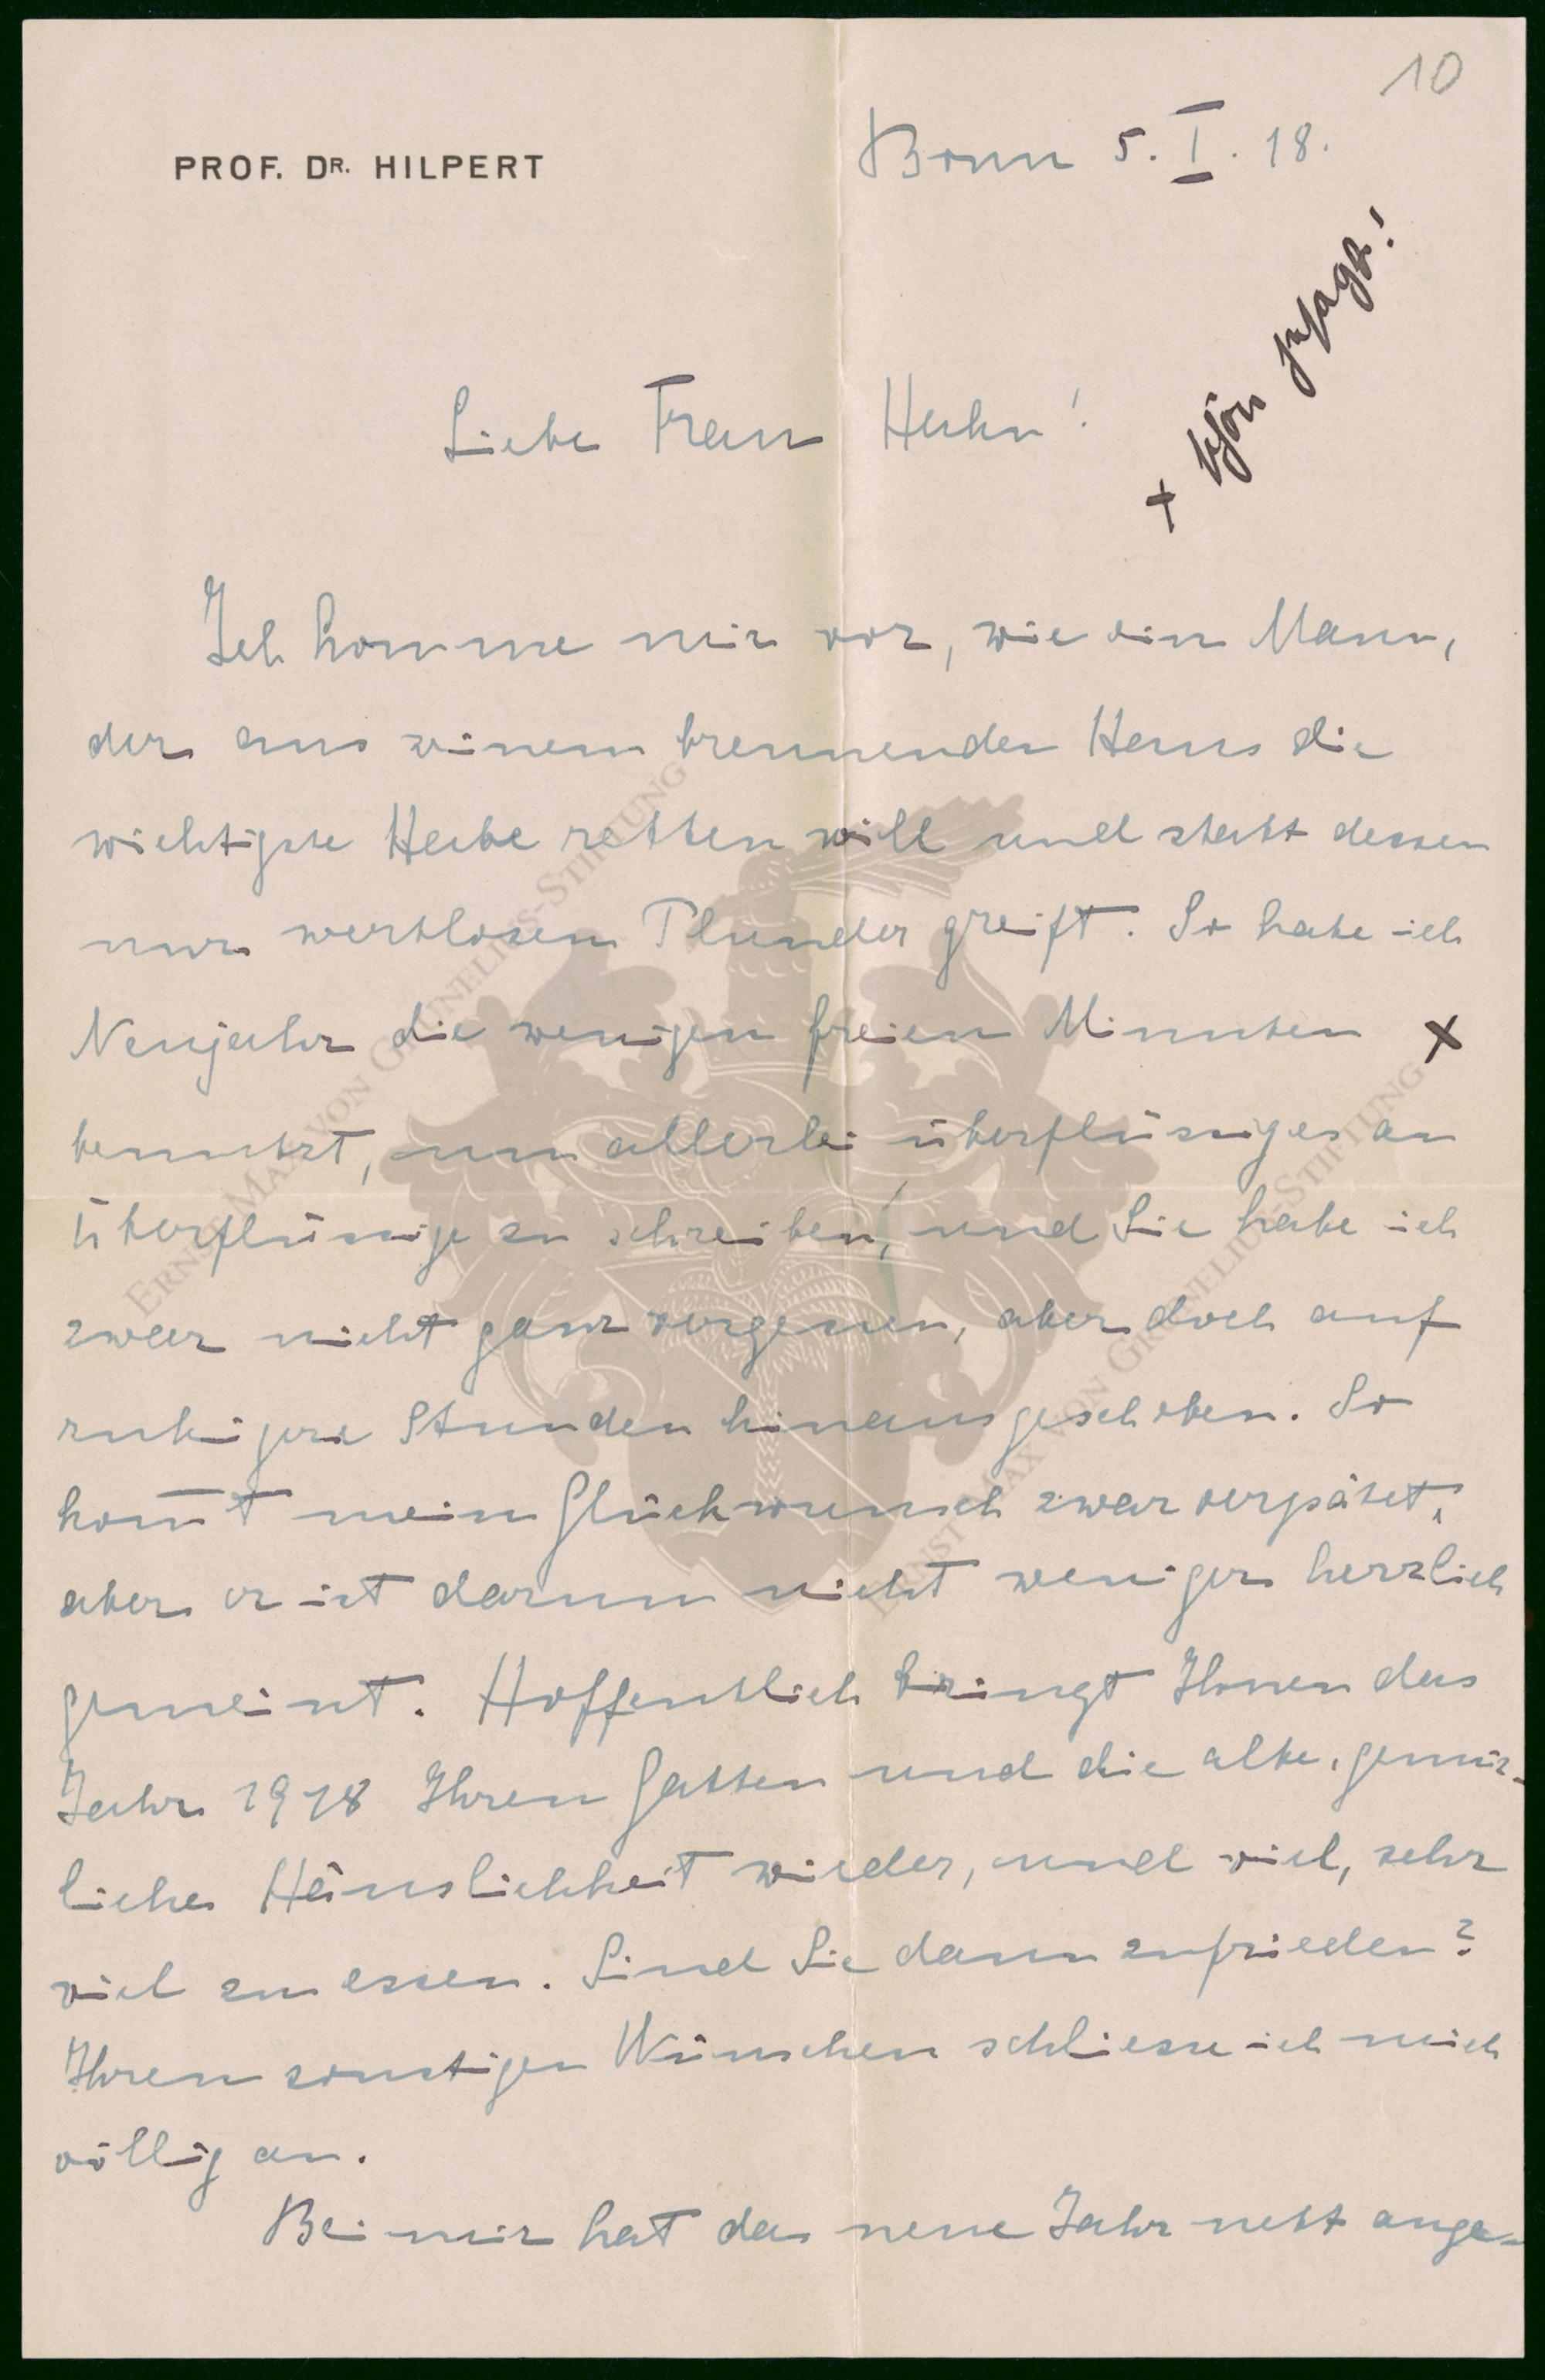 10
PROF. DR. HILPERT
Bonn 5. I. 18.
+ schön gesagt!
Liebe Frau Hahn!
Ich komme mir vor, wie ein Mann,
der aus einem brennenden Haus die
wichtigste Habe retten will und statt dessen
nur wertlosen Plunder greift. So habe ich
Neujahr die wenigen freien Minuten x
benutzt, um allerlei überflüssiges an
Überflüssige zu schreiben, und Sie habe ich
zwar nicht ganz vergessen, aber doch auf
ruhigere Stunden hinausgeschoben. So
kom̄t mein Glückwunsch zwar verspätet,
aber er ist darum nicht weniger herzlich
gemeint. Hoffentlich bringt Ihnen das
Jahr 1918 Ihren Gatten und die alte, gemüt-
liche Häuslichkeit wieder, und viel, sehr
viel zu essen. Sind Sie dann zufrieden?
Ihren sonstigen Wünschen schliesse ich mich
völlig an.
Bei mir hat das neue Jahr nett ange-
ERNST MAX VON GRUNELIUS-STIFTUNG
ERNST MAX VON GRUNELIUS-STIFTUNG